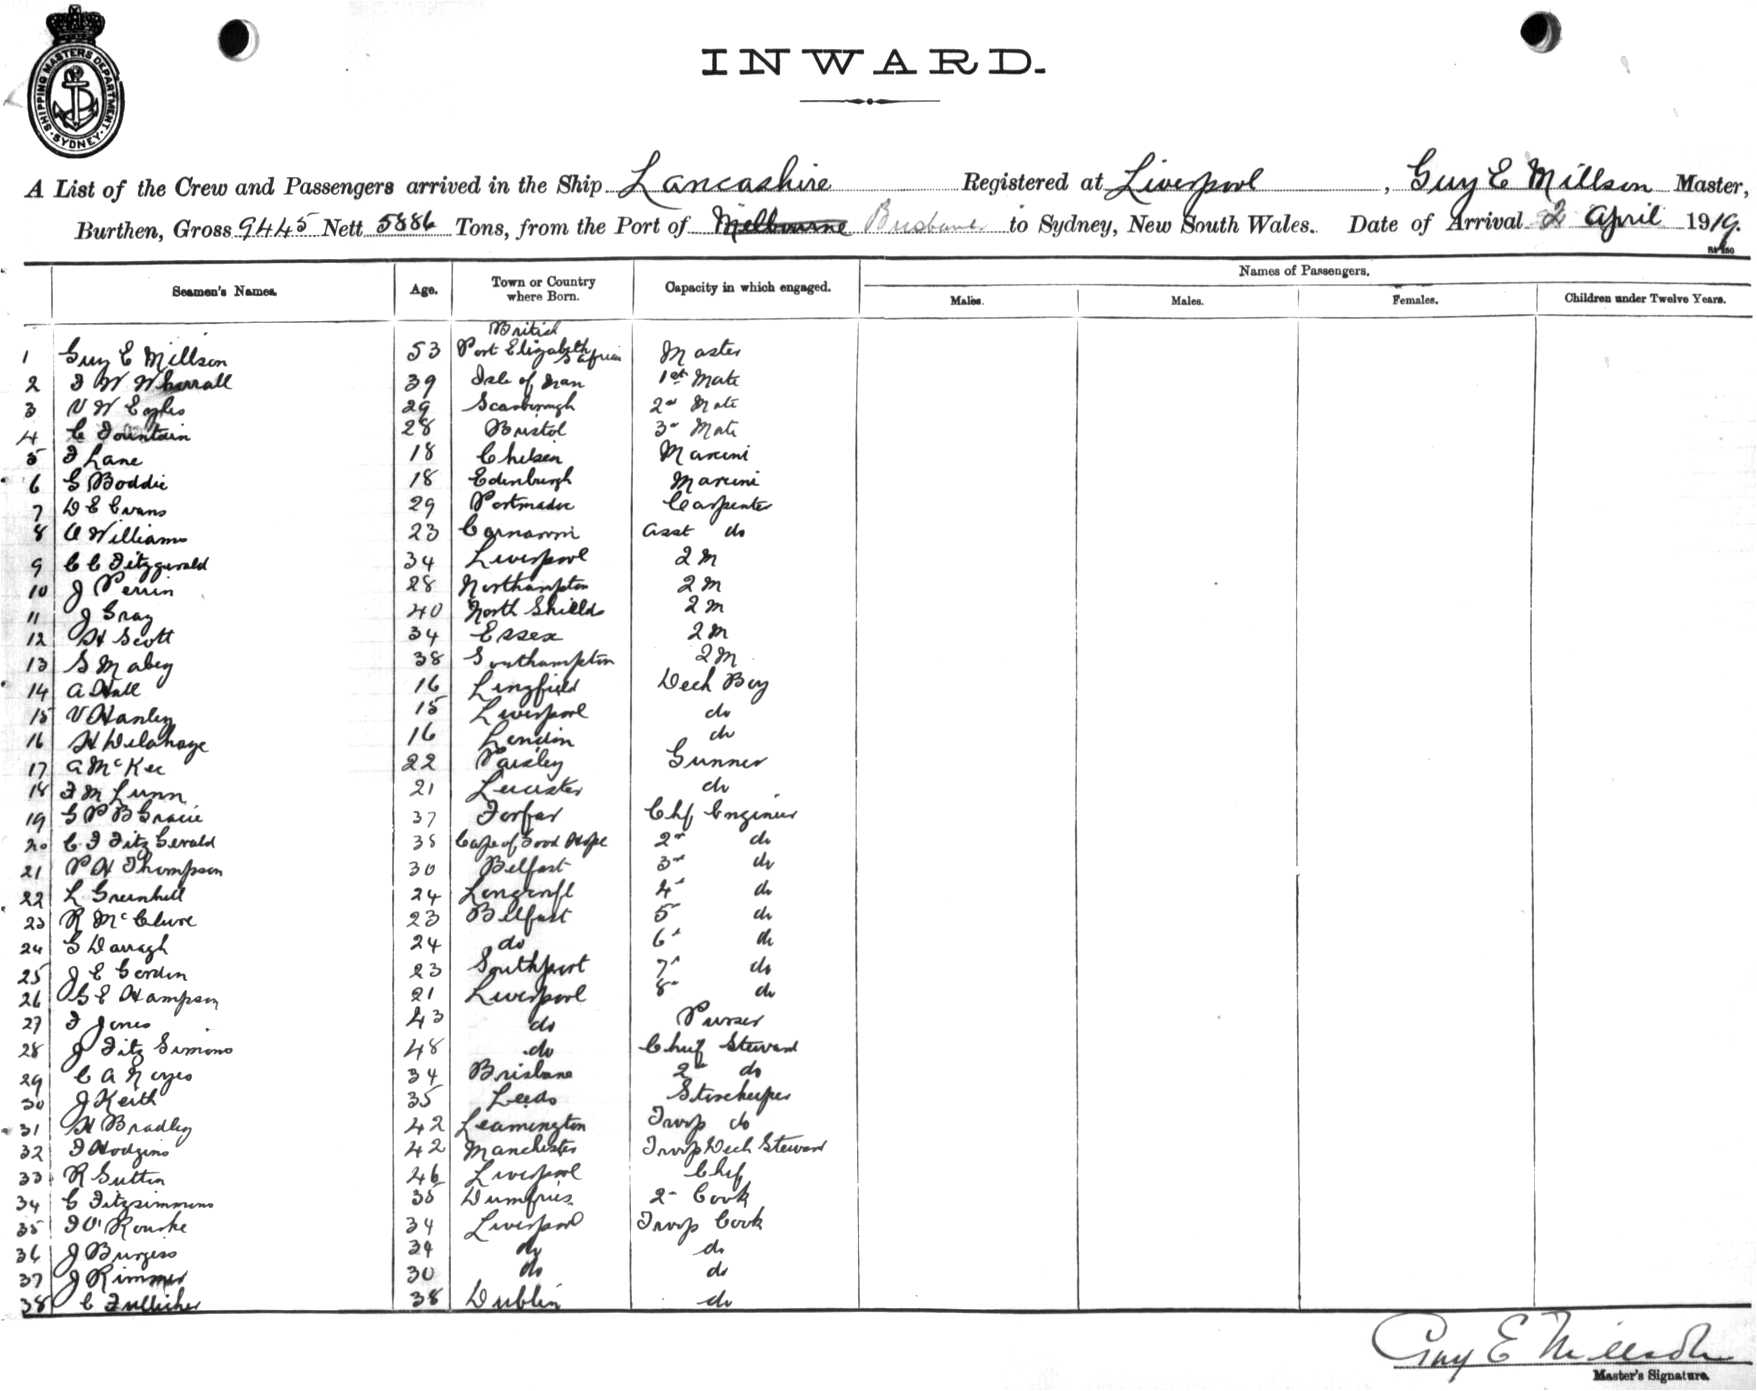 SHIPPING MASTERS DEPARTMENT
SYDNEY
INWARD.
A List of the Crew and Passengers arrived in the Ship Lancashire Registered at Liverpool, Guy E Millson Master,
Burthen, Gross 9445 Nett 5886 Tons, from the Port of Melbourne Brisbane to Sydney, New South Wales. Date of Arrival 2 April 1919.
Names of Passengers.
Seamen's Names. Age. Town or Country where Born. Capacity in which engaged. Males. Males. Females. Children under Twelve Years.
British
1 Guy E Millson 53 Port Elizabeth S African Master
2 F W Wharrall 39 Isle of Man 1st Mate
3 V W Eagles 29 Scarborough 2nd Mate
4 C Fountain 28 Bristol 3rd Mate
5 F Lane 18 Chelsea Marconi
6 G Boddie 18 Edinburgh Marconi
7 D E Evans 29 Portmadoc Carpenter
8 O Williams 23 Carnarvon Asst do
9 C C Fitzgerald 34 Liverpool 2 M
10 J Perrin 28 Northampton 2 M
11 J Gray 40 North Shields 2 M
12 H Scott 34 Essex 2 M
13 S Mabey 38 Southampton 2 M
14 A Hall 16 Lingfield Deck Boy
15 V Hanley 15 Liverpool do
16 H Delahaye 16 London do
17 A McKee 22 Paisley Gunner
18 F M Lunn 21 Leicester do
19 G P B Gracie 37 Forfar Chf Engineer
20 C F Fitz Gerald 35 Cape of Good Hope 2nd do
21 P H Thompson 30 Belfast 3rd do
22 L Greenhill 24 Longcroft 4th do
23 R McClure 23 Belfast 5th do
24 G Darragh 24 do 6th do
25 J E Cordin 23 Southport 7th do
26 G E Hampson 21 Liverpool 8th do
27 F Jones 43 do Purser
28 J Fitz Simons 48 do Chief Steward
29 C A Noyes 34 Brisbane 2nd do
30 J Keith 35 Leeds Storekeeper
31 H Bradley 42 Leamington Troop do
32 F Hodgins 42 Manchester Troop Deck Steward
33 R Sutton 46 Liverpool Chef
34 C Fitzsimmons 35 Dumfries 2nd Cook
35 F O'Rourke 34 Liverpool Troop Cook
36 J Burgess 39 do do
37 J Rimmer 30 do do
38 C Fullicher 38 Dublin do
Guy E Millson
Master's Signature.